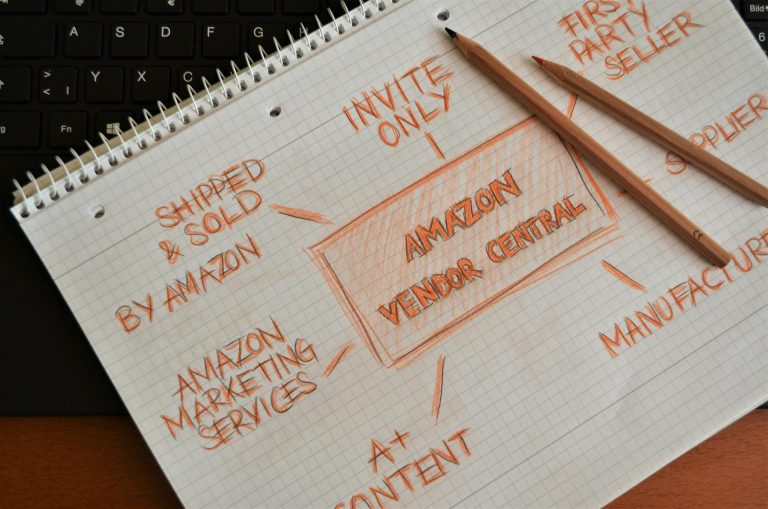 INVITE
ONLY
FIRST
PARTY
SELLER
SUPPLIER
SHIPPED
& SOLD
BY AMAZON
AMAZON
VENDOR CENTRAL
MANUFACTURE
AMAZON
MARKETING
SERVICES
A+
CONTENT
A S D F G
Y X C
Fn
Bild
6